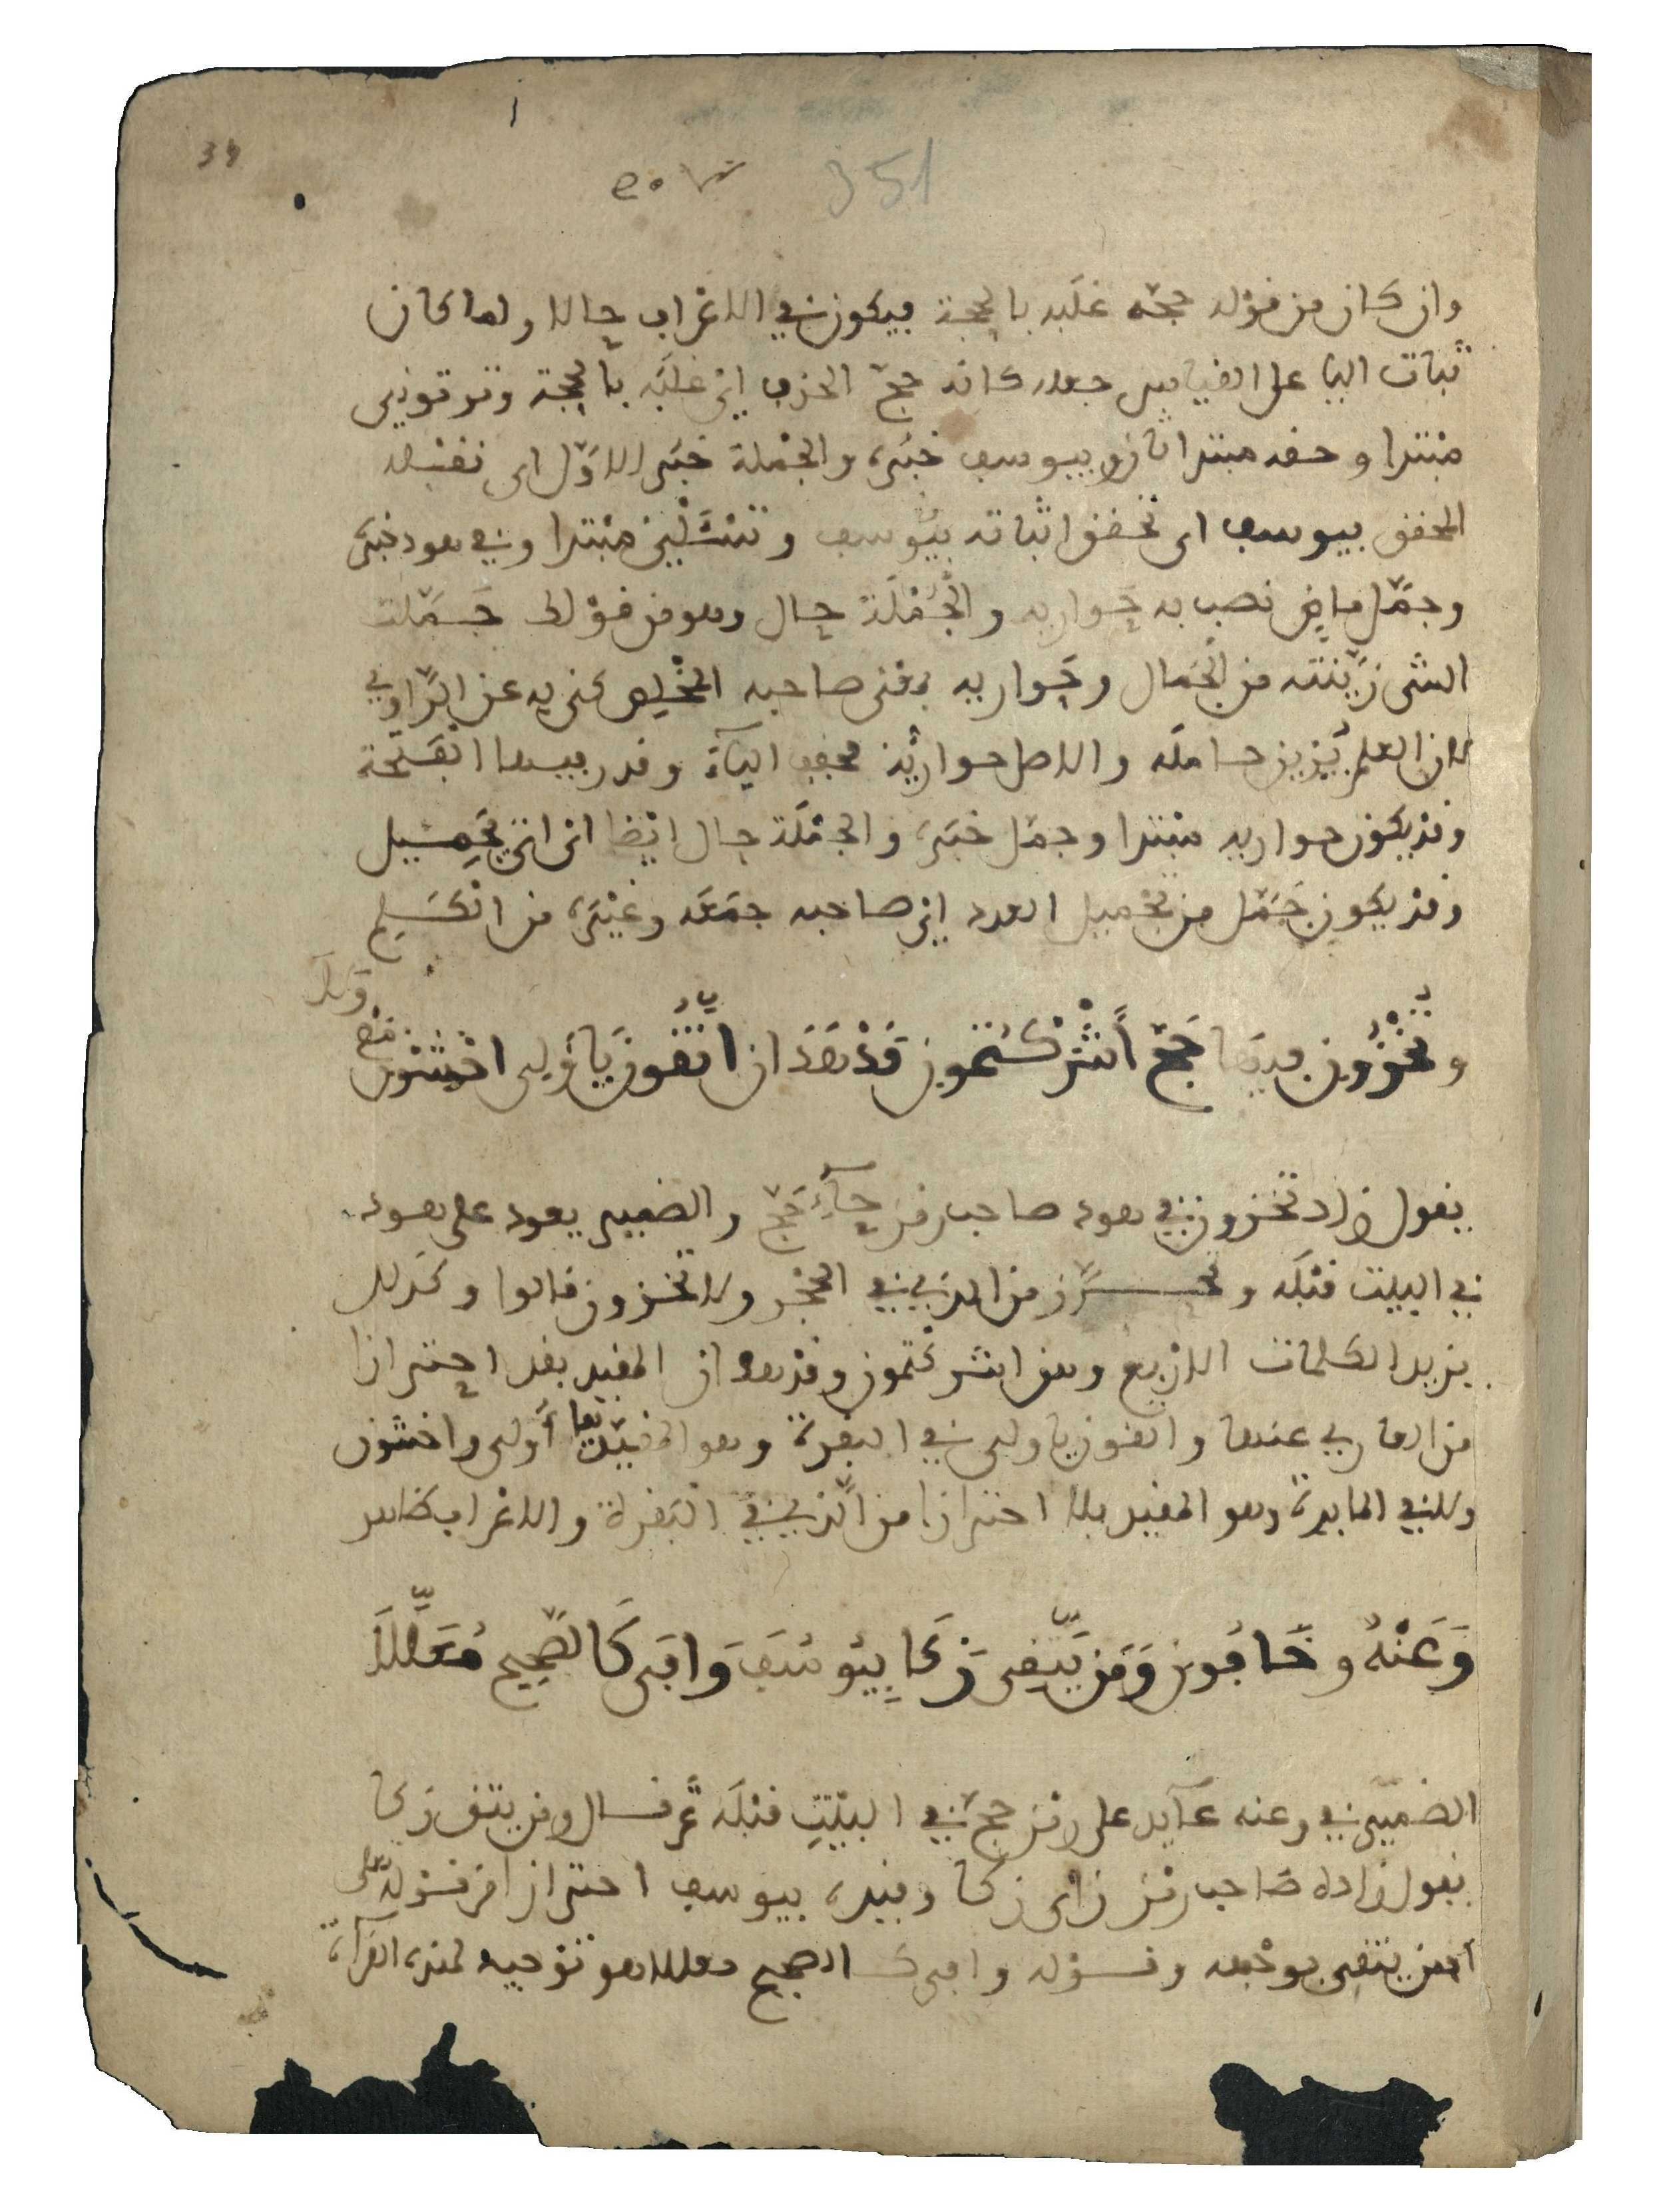 351
وان كان من قولك حجه غلبه بالحجة فيكون في الاعراب حالا ولما كان
ثبات اليا على القياس جعله كانه حج الحذف اي غلبه بالحجة وتوتوني
مبتدا وحقه مبتدا ثان وبيوسف خبره والجملة خبر الاول اى نقله
المحقق بيوسف اى تحقق اثباته بيوسف وتسئلن مبتدا وفي هود خبره
وجمل ماض نصب به حواريه والجملة حال وهو من قولك جملت
الشى زينته من الجمال وحواريه بمعنى صاحبه المخلص كنى به عن الراوي
لان العلم يزين حامله والاصل حواريه مخفف الياء وقدر بيها الفتحة
وقد يكون حواريه مبتدا وجمل خبره والجملة حال ايضا اى اتى بجميل
وقد يكون جمل من تجميل العدد اي صاحبه جمعه وغيره من الكلم
وتخزون فيها حج أشركتمون قد هدان اتقون يا أولى اخشون مع
ولا
يقول زاد تخزون في هود صاحب رمز حاء حج والضمير يعود على هود
في البيت قبله وتحرز من الذي في الحجر ولا تخزون قالوا وكذلك
يزيد الكلمات الاربع وهن اشركتمون وقد هدان المقيد بقد احترازا
من العاري عنها واتقون يا ولى في البقرة وهو المقيد بيا أولى واخشون
ولا في المايدة وهو المقيد بلا احترازا من الذي في البقرة والاعراب ظاهر
وَعَنْهُ وخَافُونِ وَمَن يَتَّقِى زَكَا بِيُوسُفَ وَافَى كَالصَّحِيحِ مُعَلَّلَا
الضمير في وعنه عآيد على رمز حج في البيت قبله ثم قال ومن يتق زكا
يقول زاده صاحب رمز زاى زكا وقيده بيوسف احترازا من قوله تعلى
افمن يتقى بوجهه وقوله وافى كالصحيح معللا هو توجيه لهذه القرآءة